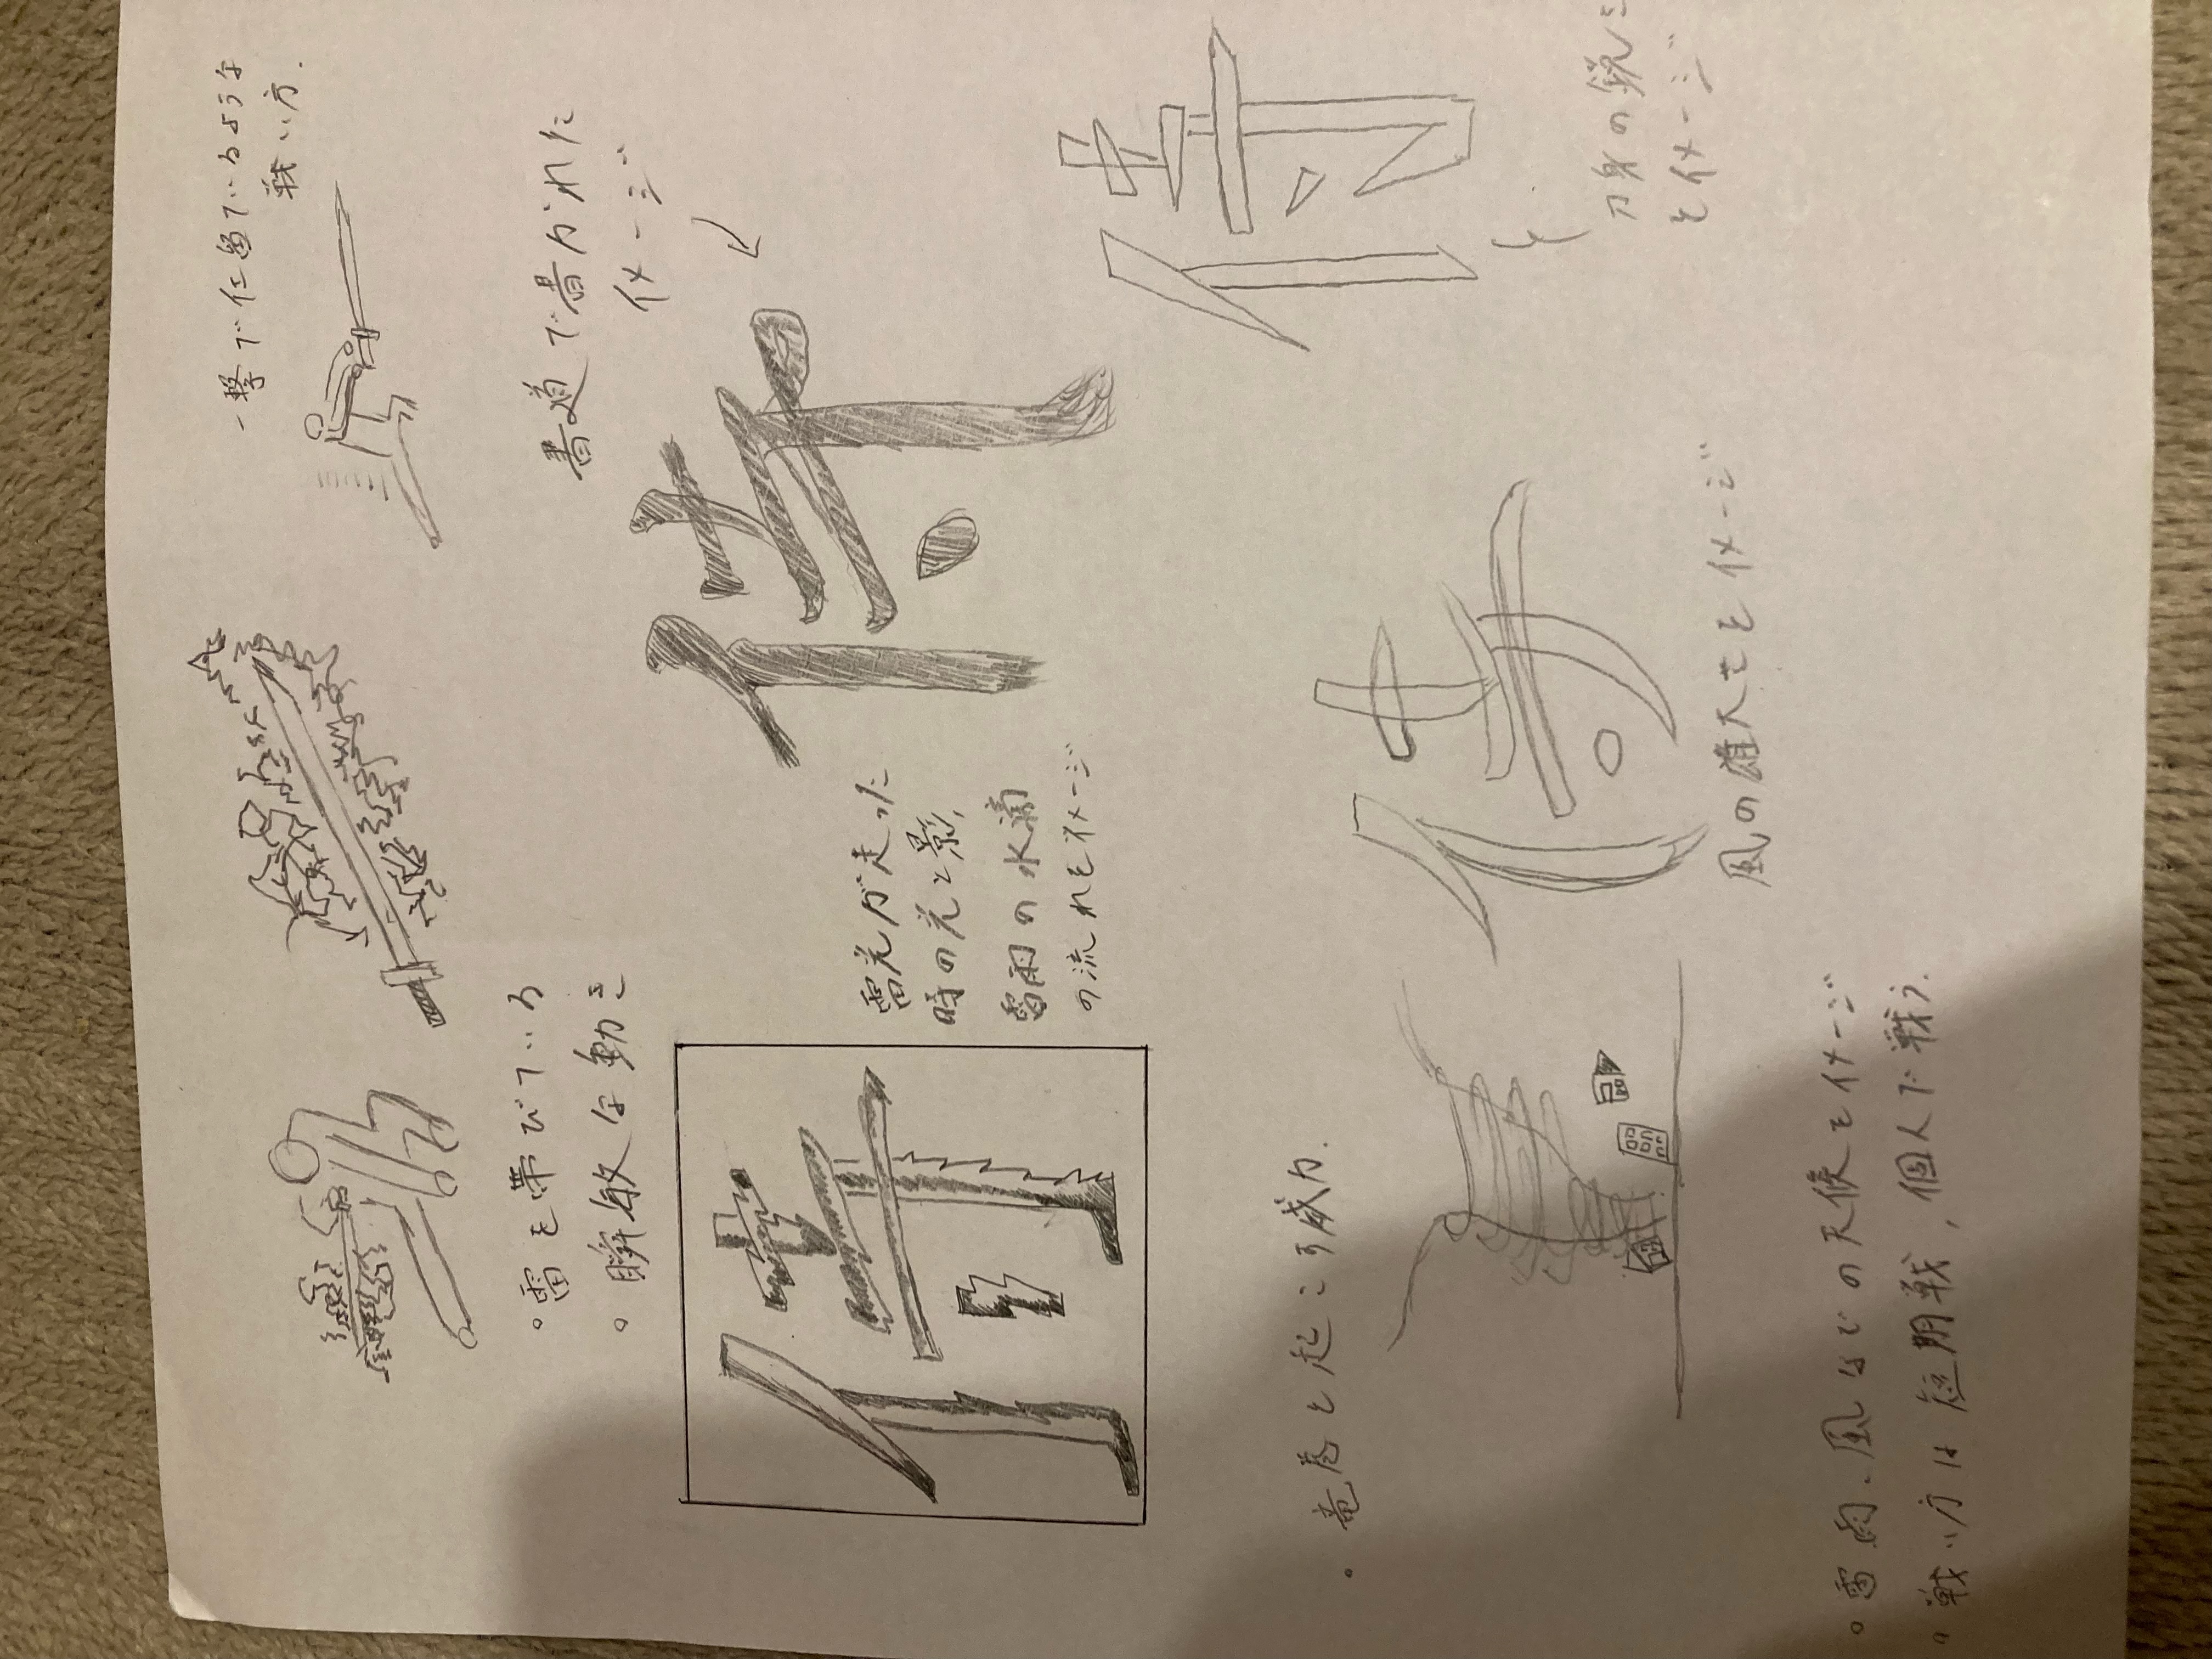 一撃で仕留ているような
戦い方.
雷を帯びている
瞬敏な動き
書道で書かれた
イメージ
侍
侍
雷光が走った
時の光と影,
雷雨の水滴
の流れをイメージ
侍
竜巻を起こす威力.
侍
刀身の鋭さ
をイメージ
風の雄大さをイメージ
雷雨、風などの天候をイメージ
戦い方は短期戦,個人で戦う.